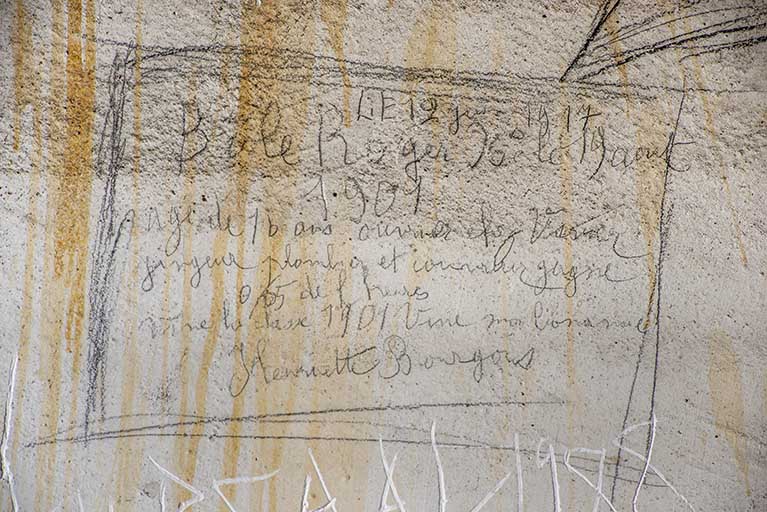 LE 12 juin 1917
Bôle Roger Né le 19 août
1901
Agé de 16 ans ouvrier chez
zingueur plombier et couvreur gagne
0,65 de l'heure
Vive la classe 1901 Vive mon
Henriette Bourgois